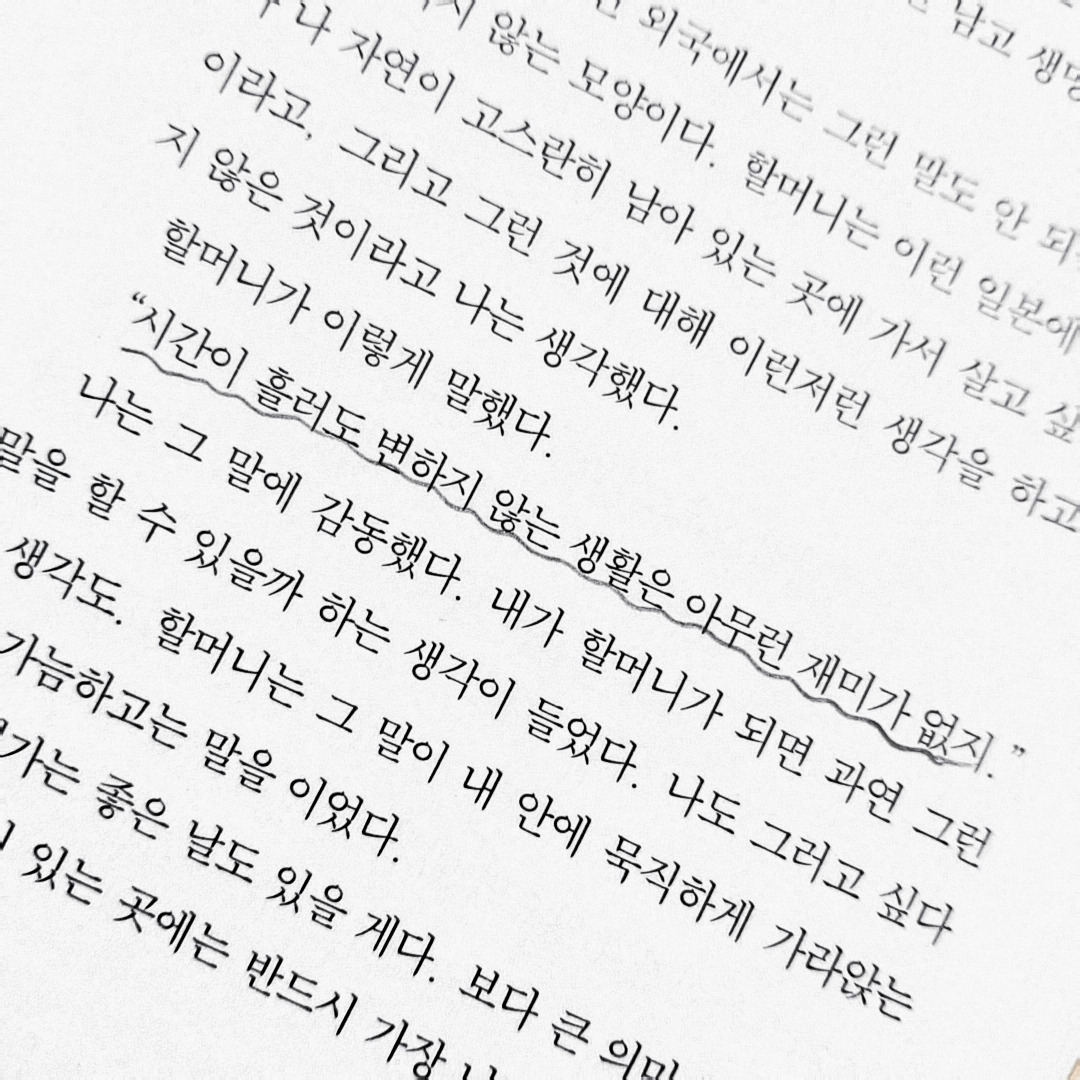 남고
외국에서는 그런 말도 안
않는 모양이다. 할머니는 이런 일본에
자연이 고스란히 남아 있는 곳에 가서 살고
이라고, 그리고 그런 것에 대해 이런저런 생각을 하고
지 않은 것이라고 나는 생각했다.
할머니가 이렇게 말했다.
“시간이 흘러도 변하지 않는 생활은 아무런 재미가 없지.”
나는 그 말에 감동했다. 내가 할머니가 되면 과연 그런
말을 할 수 있을까 하는 생각이 들었다. 나도 그러고 싶다
생각도. 할머니는 그 말이 내 안에 묵직하게 가라앉는
가늠하고는 말을 이었다.
좋은 날도 있을 게다. 보다 큰
있는 곳에는 반드시 가장